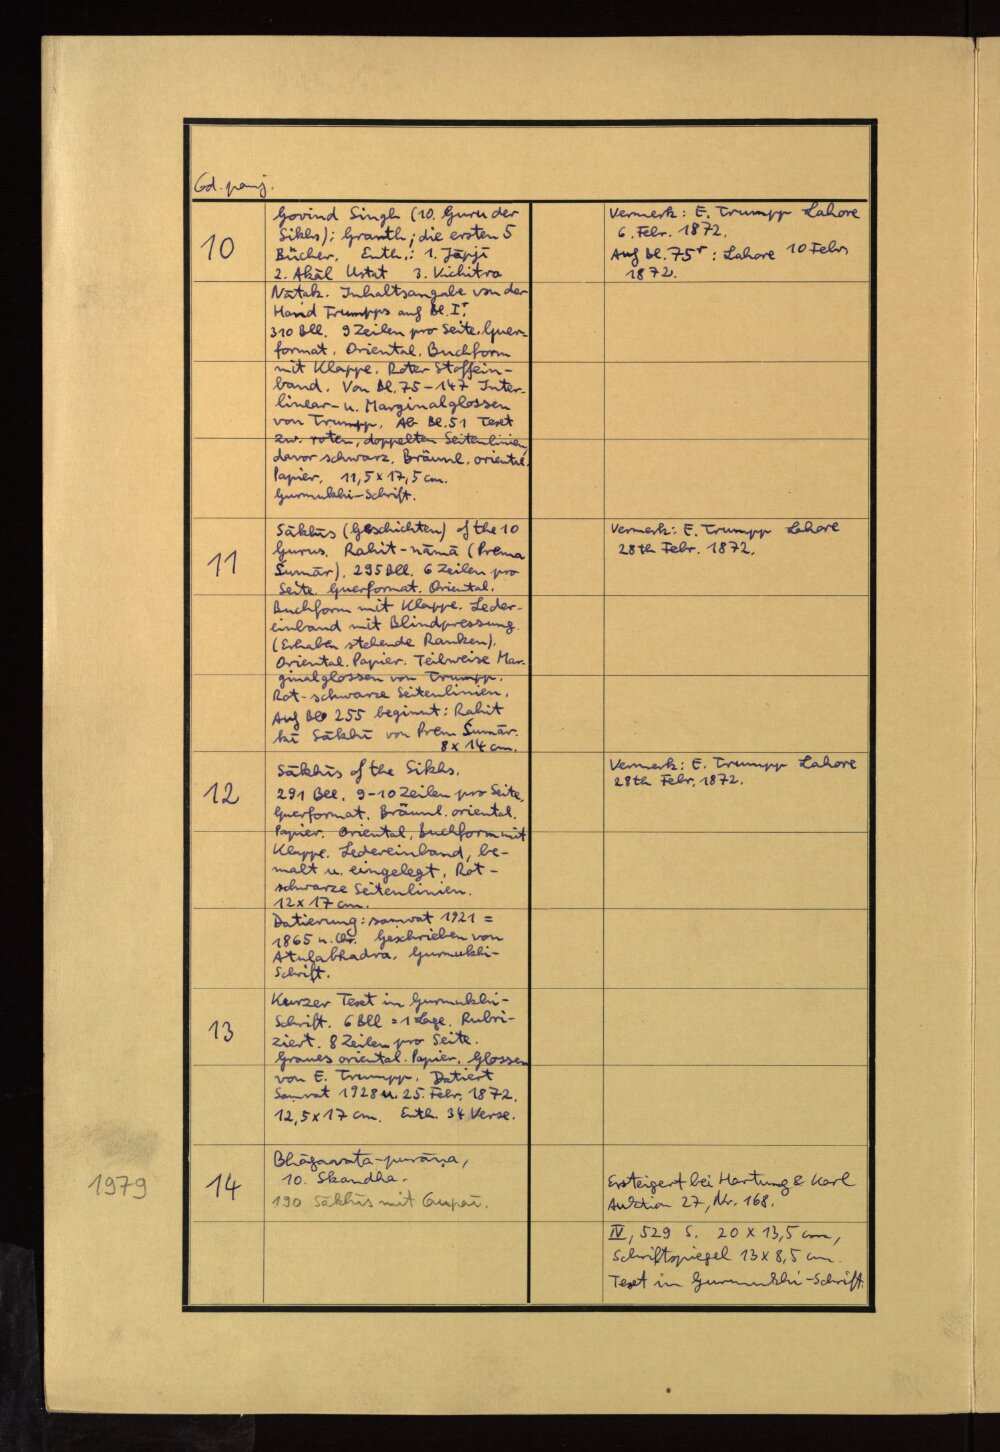 Cod. panj.
10
Govind Singh (10. Guru der
Sikhs): Granth; die ersten 5
Bücher. Enth.: 1. Jāpjī
2. Akāl Ustat 3. Vichitra
Nātak. Inhaltsangabe von der
Hand Trumpps auf Bl. Iʳ.
310 Bll. 9 Zeilen pro Seite. Quer-
format. Oriental. Buchform
mit Klappe. Roter Stoffein-
band. Von Bl. 75-147 Inter-
linear- u. Marginalglossen
von Trumpp. Ab Bl. 51 Text
zw. roten, doppelten Seitenlinien,
davor schwarz. Bräunl. oriental.
Papier. 11,5 x 17,5 cm.
Gurmukhi-Schrift.
Vermerk: E. Trumpp Lahore
6. Febr. 1872.
Auf Bl. 75ʳ: Lahore 10 Febr.
1872.
11
Sākhīs (Geschichten) of the 10
Gurus. Rahit-nāmā (Prema
Sumār). 295 Bll. 6 Zeilen pro
Seite. Querformat. Oriental.
Buchform mit Klappe. Leder-
einband mit Blindpressung
(Erhaben stehende Ranken).
Oriental. Papier. Teilweise Mar-
ginalglossen von Trumpp.
Rot-schwarze Seitenlinien.
Auf Bl 255 beginnt: Rahit
kī Sākhī von Prem Sumār.
8 x 14 cm.
Vermerk: E. Trumpp Lahore
28th Febr. 1872.
12
Sākhīs of the Sikhs.
291 Bll. 9-10 Zeilen pro Seite.
Querformat. Bräunl. oriental.
Papier. Oriental. Buchform mit
Klappe. Ledereinband, be-
malt u. eingelegt. Rot-
schwarze Seitenlinien.
12 x 17 cm.
Datierung: saṃvat 1921 =
1865 n. Chr. Geschrieben von
Atulabhadra. Gurmukhi-
Schrift.
Vermerk: E. Trumpp Lahore
28th Febr. 1872.
13
Kurzer Text in Gurmukhi-
Schrift. 6 Bll = 1 Lage. Rubri-
ziert. 8 Zeilen pro Seite.
Graues oriental. Papier. Glossen
von E. Trumpp. Datiert
Samvat 1928 u. 25. Febr. 1872.
12,5 x 17 cm. Enth. 34 Verse.
1979
14
Bhāgavata-purāṇa,
10. Skandha.
190 Sākhīs mit
Ersteigert bei Hartung & Karl
Auktion 27, Nr. 168.
IV, 529 S. 20 x 13,5 cm,
Schriftspiegel 13 x 8,5 cm.
Text in Gurmukhi-Schrift.